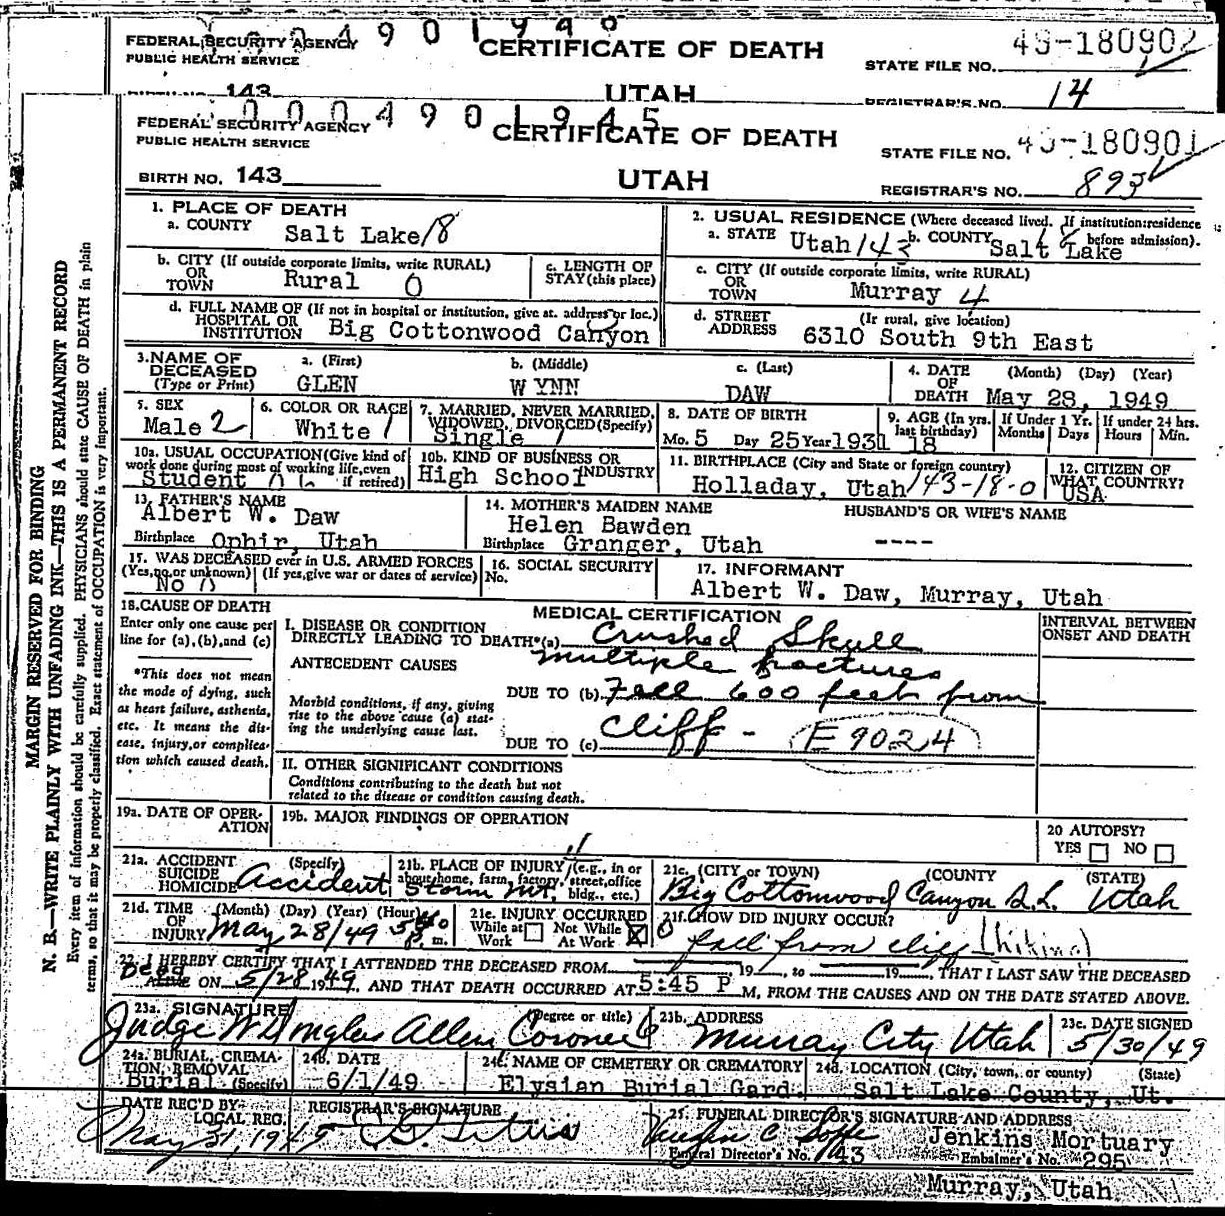 FEDERAL SECURITY AGENCY
PUBLIC HEALTH SERVICE
CERTIFICATE OF DEATH
STATE FILE NO. 49-180902
143
UTAH
REGISTRAR'S NO. 14
0004901945
FEDERAL SECURITY AGENCY
PUBLIC HEALTH SERVICE
CERTIFICATE OF DEATH
STATE FILE NO. 49-180901
BIRTH NO. 143
UTAH
REGISTRAR'S NO. 893
MARGIN RESERVED FOR BINDING
N. B.—WRITE PLAINLY WITH UNFADING INK—THIS IS A PERMANENT RECORD
Every item of information should be carefully supplied. PHYSICIANS should state CAUSE OF DEATH in plain
terms, so that it may be properly classified. Exact statement of OCCUPATION is very important.
1. PLACE OF DEATH
a. COUNTY Salt Lake 18
2. USUAL RESIDENCE (Where deceased lived. If institution: residence before admission).
a. STATE Utah 143 b. COUNTY Salt Lake
b. CITY (If outside corporate limits, write RURAL) OR TOWN Rural 0
c. LENGTH OF STAY (this place)
c. CITY (If outside corporate limits, write RURAL) OR TOWN Murray 4
d. FULL NAME OF (If not in hospital or institution, give st. address or loc.) HOSPITAL OR INSTITUTION Big Cottonwood Canyon
d. STREET ADDRESS (If rural, give location) 6310 South 9th East
3. NAME OF DECEASED (Type or Print)
a. (First) GLEN
b. (Middle) WYNN
c. (Last) DAW
4. DATE OF DEATH (Month) (Day) (Year) May 28, 1949
5. SEX Male 2
6. COLOR OR RACE White 1
7. MARRIED, NEVER MARRIED, WIDOWED, DIVORCED (Specify) Single 1
8. DATE OF BIRTH Mo. 5 Day 25 Year 1931
9. AGE (In yrs. last birthday) 18
If Under 1 Yr. Months Days
If under 24 hrs. Hours Min.
10a. USUAL OCCUPATION (Give kind of work done during most of working life, even if retired) Student
10b. KIND OF BUSINESS OR INDUSTRY High School
11. BIRTHPLACE (City and State or foreign country) Holladay, Utah 143-18-0
12. CITIZEN OF WHAT COUNTRY? USA
13. FATHER'S NAME Albert W. Daw
Birthplace Ophir, Utah
14. MOTHER'S MAIDEN NAME Helen Bawden
Birthplace Granger, Utah
HUSBAND'S OR WIFE'S NAME ----
15. WAS DECEASED ever in U.S. ARMED FORCES (Yes, no, or unknown) (If yes, give war or dates of service) No 0
16. SOCIAL SECURITY No.
17. INFORMANT Albert W. Daw, Murray, Utah
18. CAUSE OF DEATH
Enter only one cause per line for (a), (b), and (c)
*This does not mean the mode of dying, such as heart failure, asthenia, etc. It means the disease, injury, or complication which caused death.
MEDICAL CERTIFICATION
INTERVAL BETWEEN ONSET AND DEATH
I. DISEASE OR CONDITION DIRECTLY LEADING TO DEATH* (a) Crushed Skull
multiple fractures
ANTECEDENT CAUSES
Morbid conditions, if any, giving rise to the above cause (a) stating the underlying cause last.
DUE TO (b) Fell 600 feet from
DUE TO (c) Cliff - E 9024
II. OTHER SIGNIFICANT CONDITIONS
Conditions contributing to the death but not related to the disease or condition causing death.
19a. DATE OF OPERATION
19b. MAJOR FINDINGS OF OPERATION
20 AUTOPSY? YES NO
21a. ACCIDENT SUICIDE HOMICIDE (Specify) Accident
21b. PLACE OF INJURY (e.g., in or about home, farm, factory, street, office bldg., etc.) Storm Mt.
21c. (CITY or TOWN) (COUNTY) (STATE) Big Cottonwood Canyon S.L. Utah
21d. TIME OF INJURY (Month) (Day) (Year) (Hour) May 28/49 m.
21e. INJURY OCCURRED While at Work Not While At Work X
21f. HOW DID INJURY OCCUR? fall from cliff (hiking)
22. I HEREBY CERTIFY THAT I ATTENDED THE DECEASED FROM , 19 , to 19 , THAT I LAST SAW THE DECEASED
Dead ALIVE ON 5/28 1949, AND THAT DEATH OCCURRED AT 5:45 P M, FROM THE CAUSES AND ON THE DATE STATED ABOVE.
23a. SIGNATURE (Degree or title) Judge W. Douglas Allen Coroner
23b. ADDRESS Murray City Utah
23c. DATE SIGNED 5/30/49
24a. BURIAL, CREMATION, REMOVAL (Specify) Burial
24b. DATE 6/1/49
24c. NAME OF CEMETERY OR CREMATORY Elysian Burial Gard.
24d. LOCATION (City, town, or county) (State) Salt Lake County, Ut.
DATE REC'D BY LOCAL REG. May 31, 1949
REGISTRAR'S SIGNATURE
25. FUNERAL DIRECTOR'S SIGNATURE AND ADDRESS
Jenkins Mortuary
Funeral Director's No. 143
Embalmer's No. 295
Murray, Utah